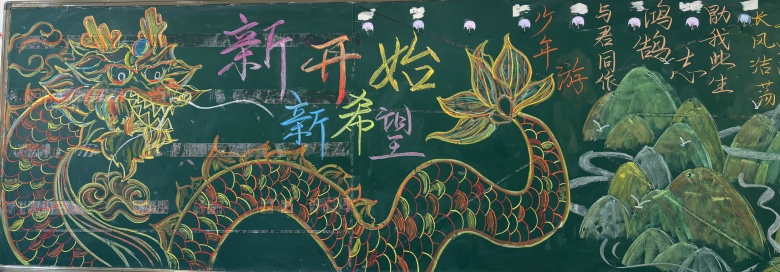 新开始
新希望
少年游
与君同作
鸿鹄志
助我此生
长风浩荡